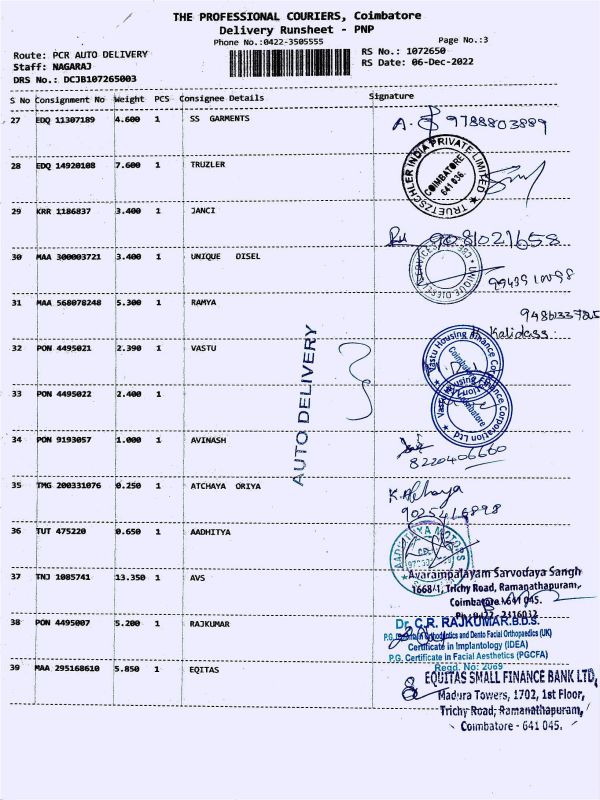 THE PROFESSIONAL COURIERS, Coimbatore
Delivery Runsheet - PNP
Phone No.:0422-3505555
Page No.:3
Route: PCR AUTO DELIVERY
RS No.: 1072650
Staff: NAGARAJ
RS Date: 06-Dec-2022
DRS No.: DCJB107265003
S No Consignment No Weight PCS Consignee Details Signature
27 EDQ 11307189 4.600 1 SS GARMENTS A. 9788803889
28 EDQ 14920108 7.600 1 TRUZLER
TRUETZSCHLER INDIA PRIVATE LIMITED
COIMBATORE
641 036.
29 KRR 1186837 3.400 1 JANCI
9081021658
30 MAA 300003721 3.400 1 UNIQUE DISEL
UNIQUE DIESEL SERVICES
31 MAA 568078248 5.300 1 RAMYA
Kalidass.
32 PON 4495021 2.390 1 VASTU
Vastu Housing Finance Corporation Ltd
Coimbatore
33 PON 4495022 2.400 1
Vastu Housing Finance Corporation Ltd
Coimbatore
AUTO DELIVERY
34 PON 9193057 1.000 1 AVINASH
8220406660
35 TMG 200331076 0.250 1 ATCHAYA ORIYA
K. Atchaya
9025416898
36 TUT 475220 0.650 1 AADHITYA
AADHITYA MOTORS
37 TNJ 1085741 13.350 1 AVS
Avarampalayam Sarvodaya Sangh
1668/1, Trichy Road, Ramanathapuram,
Coimbatore - 641 045.
Ph: 0422- 2316032
38 PON 4495007 5.200 1 RAJKUMAR
Dr. C.R. RAJKUMAR.B.D.S.
P.G. Orthodontics and Dento Facial Orthopaedics (UK)
Certificate in Implantology (IDEA)
P.G. Certificate in Facial Aesthetics (PGCFA)
Regd. No: 2069
39 MAA 295168610 5.850 1 EQITAS
EQUITAS SMALL FINANCE BANK LTD,
Madura Towers, 1702, 1st Floor,
Trichy Road, Ramanathapuram,
Coimbatore - 641 045.